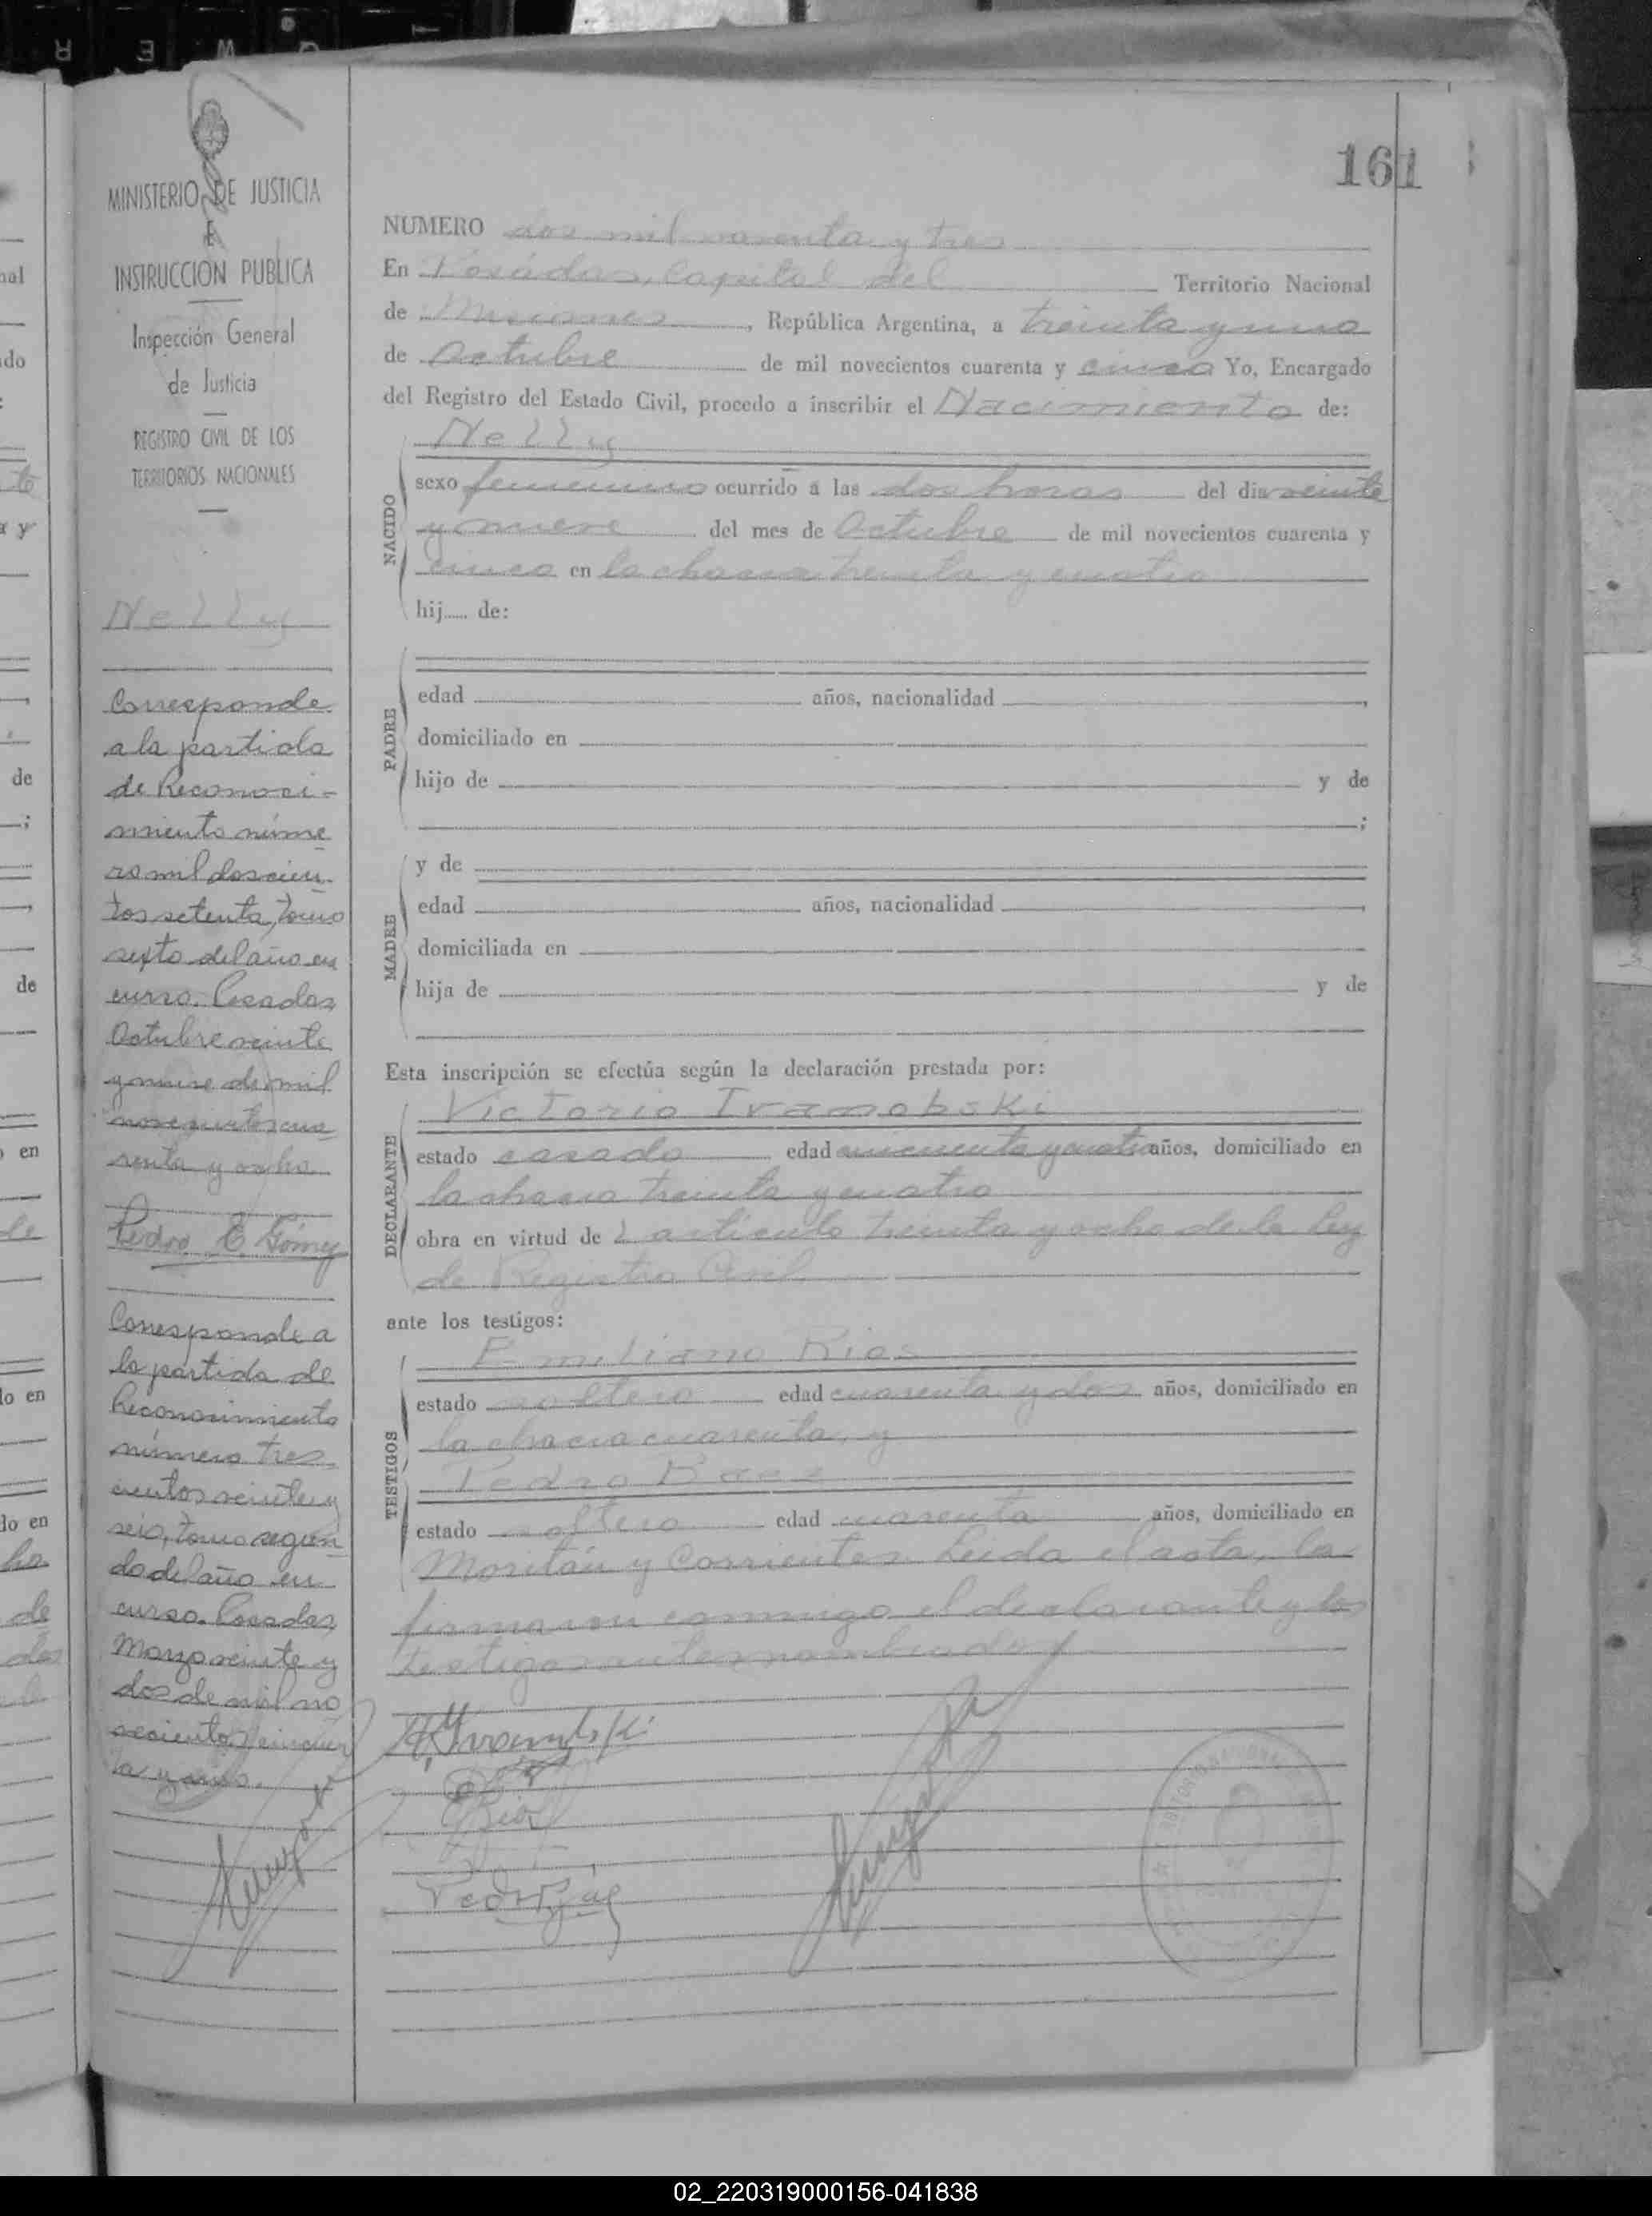 161
MINISTERIO DE JUSTICIA
E
INSTRUCCION PUBLICA
Inspección General
de Justicia
REGISTRO CIVIL DE LOS
TERRITORIOS NACIONALES
Nelly
Corresponde
a la partida
de Reconoci-
miento núme
ro mil doscien-
tos setenta, tomo
sexto del año en
curso. Posadas,
Octubre veinte
y nueve de mil
novecientos cua
renta y ocho
Pedro E. Gómez
Corresponde a
la partida de
Reconocimiento
número tres-
cientos veinte y
seis, tomo segun
do del año en
curso. Posadas,
Marzo veinte y
dos de mil no
vecientos cincuen
ta y
NUMERO dos mil y tres
En Posadas, Capital del Territorio Nacional
de Misiones, República Argentina, a treinta y uno
de Octubre de mil novecientos cuarenta y cinco Yo, Encargado
del Registro del Estado Civil, procedo a inscribir el Nacimiento de:
Nelly
NACIDO
sexo femenino ocurrido a las dos horas del dia veinte
y nueve del mes de Octubre de mil novecientos cuarenta y
cinco en la chacra treinta y cuatro
hij..... de:
PADRE
edad años, nacionalidad
domiciliado en
hijo de y de
;
MADRE
y de
edad años, nacionalidad
domiciliada en
hija de y de
Esta inscripción se efectúa según la declaración prestada por:
DECLARANTE
Victorio
estado casado edad cincuenta y cuatro años, domiciliado en
la chacra treinta y cuatro
obra en virtud del artículo treinta y ocho de la Ley
de Registro Civil
ante los testigos:
TESTIGOS
Emiliano Rios
estado soltero edad cuarenta y dos años, domiciliado en
la chacra cuarenta, y
Pedro Baez
estado soltero edad cuarenta años, domiciliado en
y Corrientes. Leida el acta, la
firmaron conmigo el declarante y los
testigos antes nombrados
Rios
02_220319000156-041838